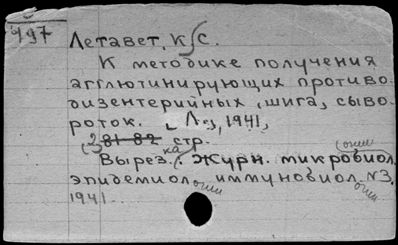 497
Летавет, К. С.
К методике получения
агглютинирующих противо
дизентерийных, шига, сыво
роток. Л., 1941,
2 81-82 стр.
Вырез. Журн. микробиол.
эпидемиол иммунобиол. №3,
1941